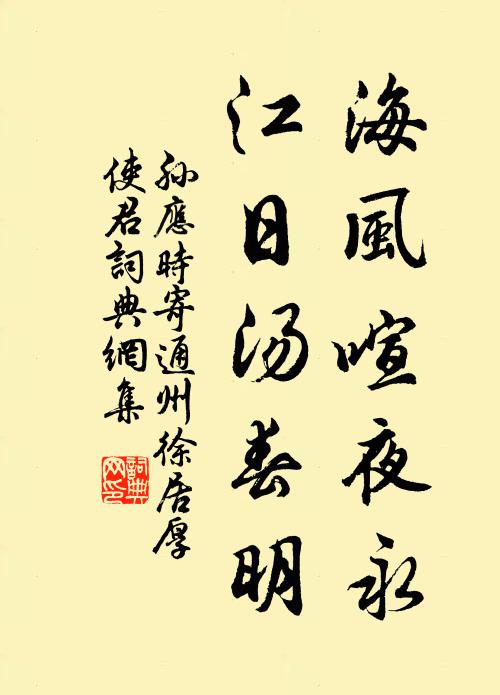 海風喧夜永
江日汤春明
孫應時寄通州徐居厚
使君詞典網集
詞典
网印